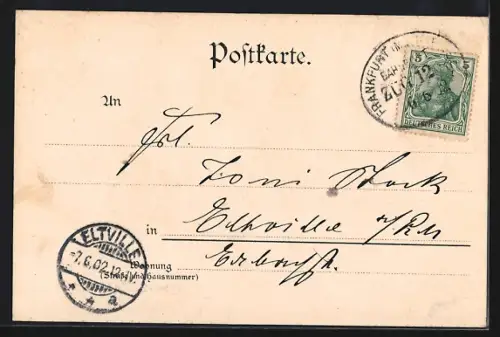 Postkarte.
FRANKFURT
BAH
ZUG 12
6
5 5
DEUTSCHES REICH
An
Frl.
Toni Stock
in Eltville a/Rh
ELTVILLE
-7.6.02.12-1N.
* * a
Wohnung
(Straße und Hausnummer)